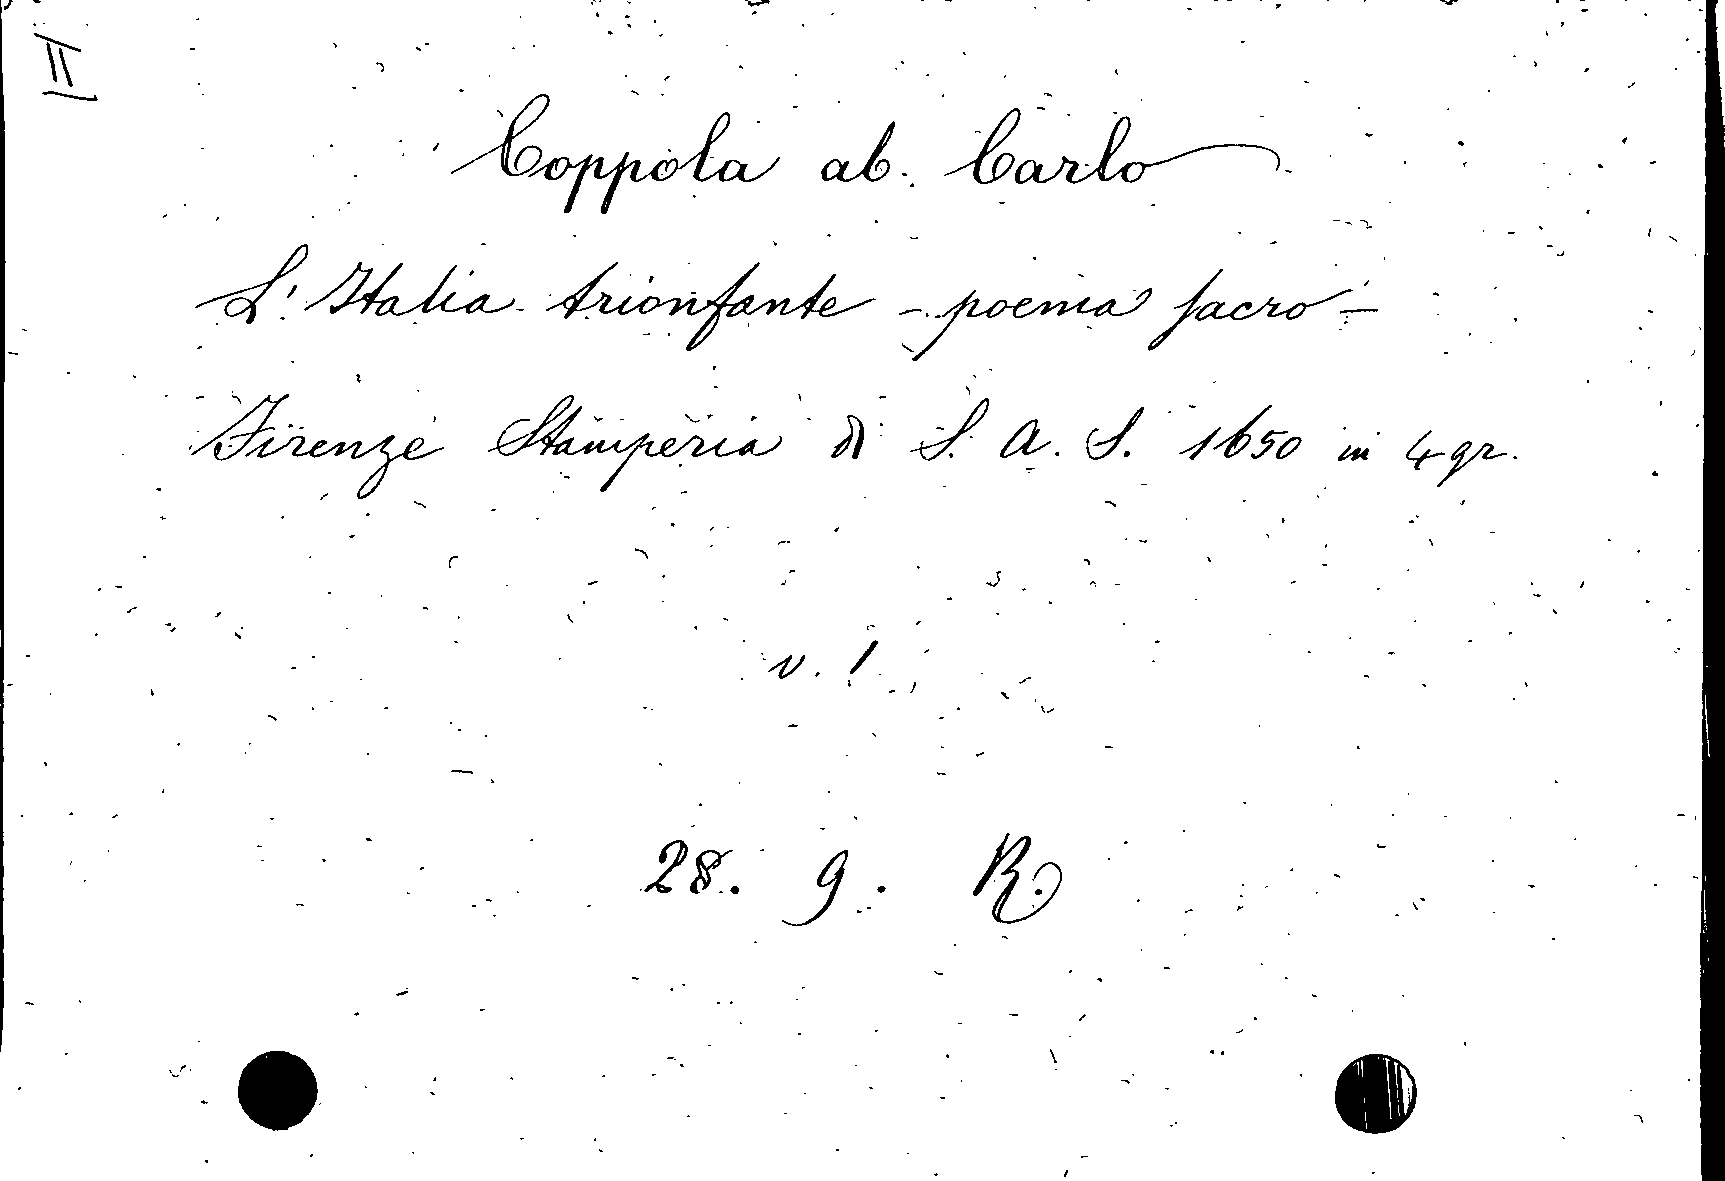 II
Coppola ab. Carlo
L'Italia trionfante - poema sacro -
Firenze Stamperia di S. A. S. 1650 in 4 gr.
v. 1
28. 9. R.